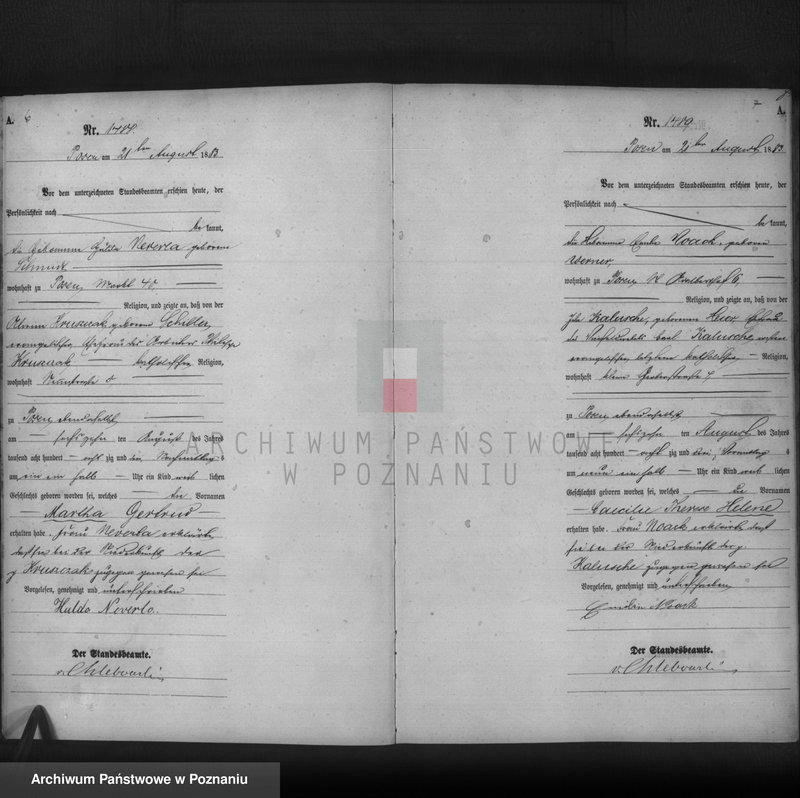 A. 6
Nr. 1418.
Posen am 21ten August 1883
Vor dem unterzeichneten Standesbeamten erschien heute, der
Persönlichkeit nach
bekannt,
die Hebamme Hulda Neverla geborene
Schmidt
wohnhaft zu Posen, Markt 40,
Religion, und zeigte an, daß von der
Kruszcak geborene Schiller,
evangelischer Ehefrau des Arbeiter
Kruszcak katholischer Religion,
wohnhaft
zu Posen ebendaselbst
am sechszehn ten August des Jahres
tausend acht hundert acht zig und drei Nachmittags
um ein ein halb Uhr ein Kind weib lichen
Geschlechts geboren worden sei, welches die Vornamen
Martha Gertrud
erhalten habe. Frau Neverla erklärte,
daß sie bei der Niederkunft der
p Kruszcak zugegen gewesen sei
Vorgelesen, genehmigt und unterschrieben
Hulda Neverla.
Der Standesbeamte.
v. Chlebowski
7
A.
Nr. 1419.
Posen am 21ten August 1883
Vor dem unterzeichneten Standesbeamten erschien heute, der
Persönlichkeit nach
bekannt,
die Hebamme Noack, geborene
Werner,
wohnhaft zu Posen, 6,
Religion, und zeigte an, daß von der
Kaleusche, geborenen Ehefrau
des Carl Kaleusche, ersterer
evangelischer letztere katholischer Religion,
wohnhaft kleine Gerberstraße
zu Posen ebendaselbst
am sechszehn ten August des Jahres
tausend acht hundert acht zig und drei, Vormittag s
um neun ein halb Uhr ein Kind weib lichen
Geschlechts geboren worden sei, welches die Vornamen
Caecilie Therese Helene
erhalten habe. Frau Noack erklärte daß
sie bei der Niederkunft der p.
Kaleusche zugegen gewesen sei
Vorgelesen, genehmigt und unterschrieben
Noack
Der Standesbeamte.
v. Chlebowski
ARCHIWUM PAŃSTWOWE
W POZNANIU
Archiwum Państwowe w Poznaniu